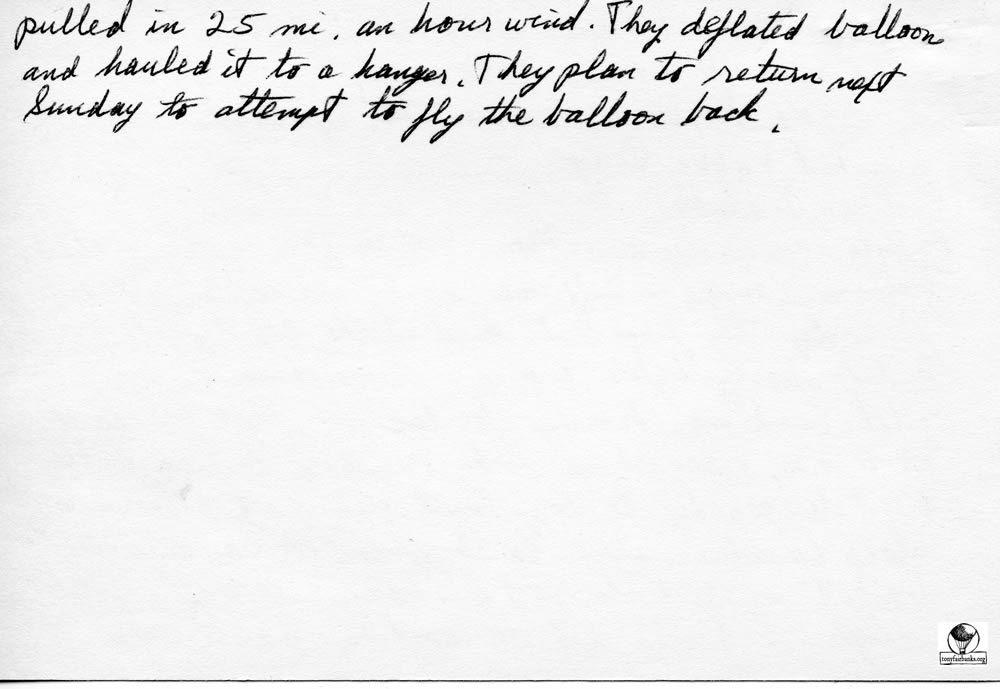 pulled in 25 mi. an hour wind. They deflated balloon
and hauled it to a hanger. They plan to return next
Sunday to attempt to fly the balloon back.
tonyfairbanks.org